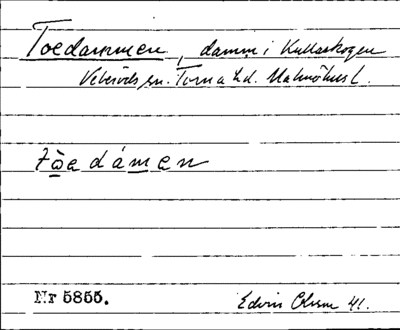 Toedammen, damm i Kullaskogen
Veberöds sn. Torna hd. Malmöhus l.
tòe dámen
Nr 5855.
Edvin Ohlsson 41.